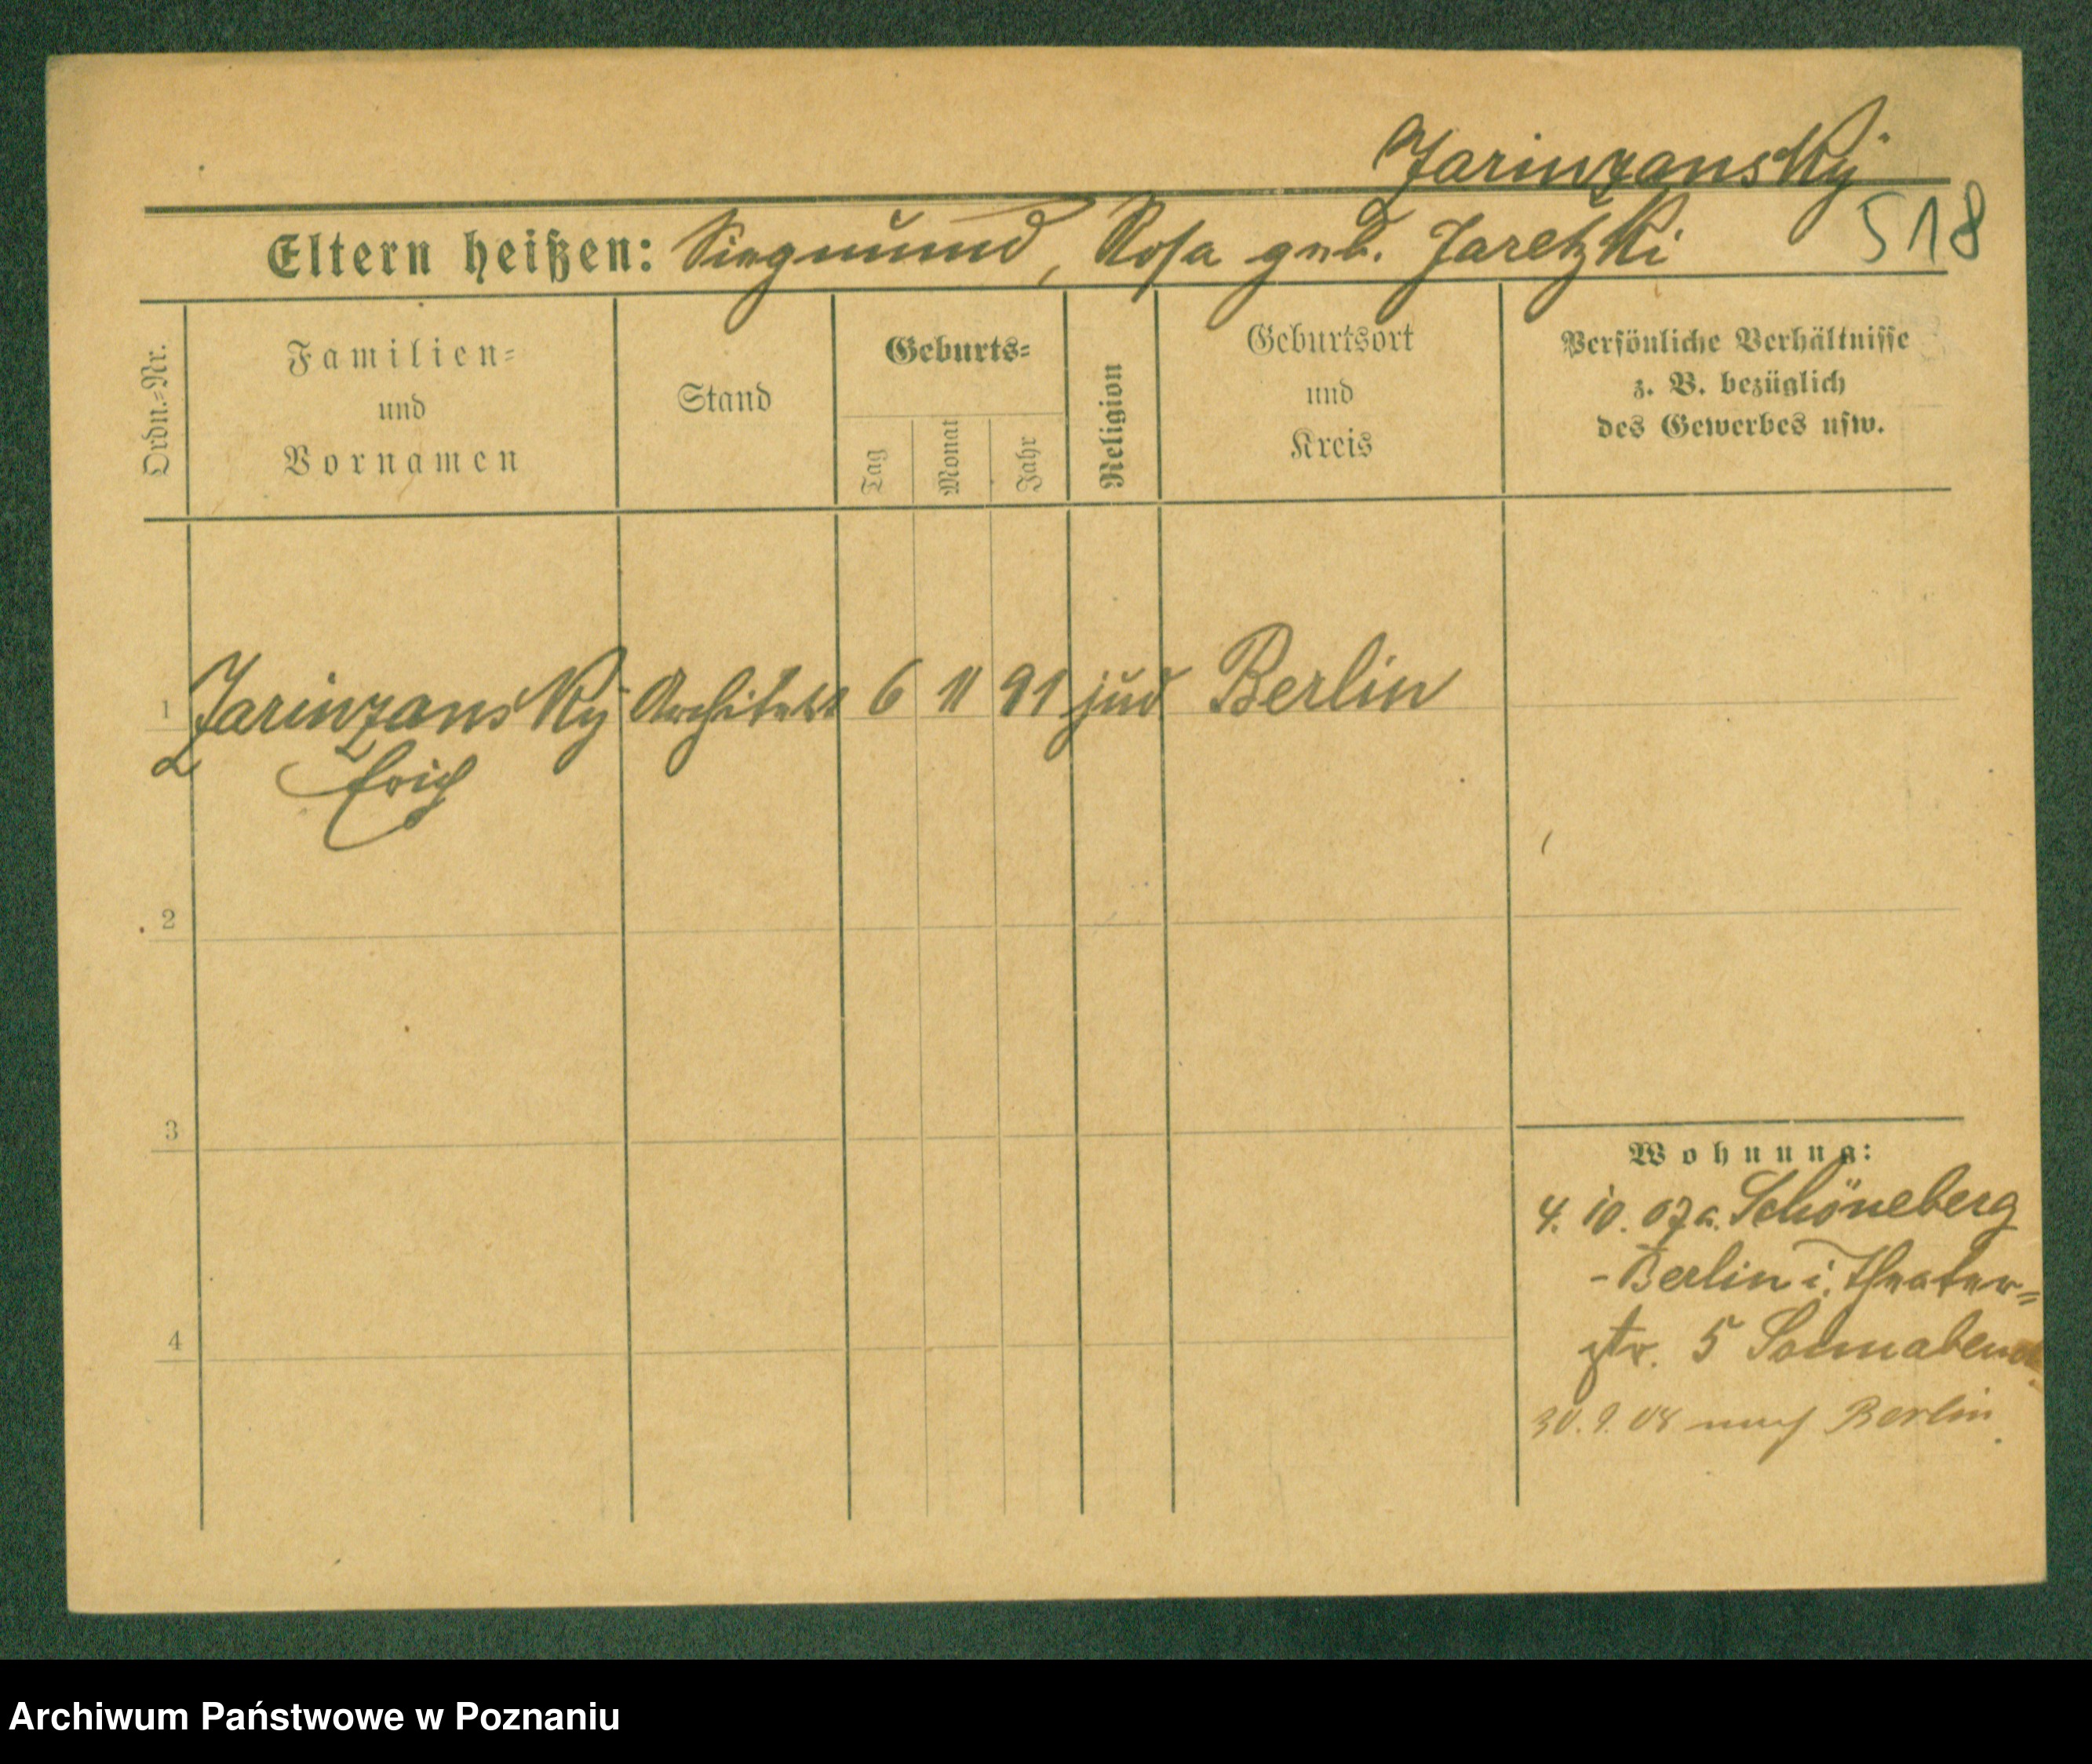 Jarinzansky
518
Eltern heißen: Siegmund, Rosa geb. Jaretzki
Ordn.-Nr.
Familien-
und
Vornamen
Stand
Geburts-
Tag
Monat
Jahr
Religion
Geburtsort
und
Kreis
Persönliche Verhältnisse
z. B. bezüglich
des Gewerbes usw.
1 Jarinzansky Architekt 6 11 91 jüd Berlin
Erich
2
3
4
Wohnung:
4. 10. 07 a. Schöneberg
-Berlin i. Theater=
str. 5 Sonnabend
30. 9. 08 nach Berlin.
Archiwum Państwowe w Poznaniu